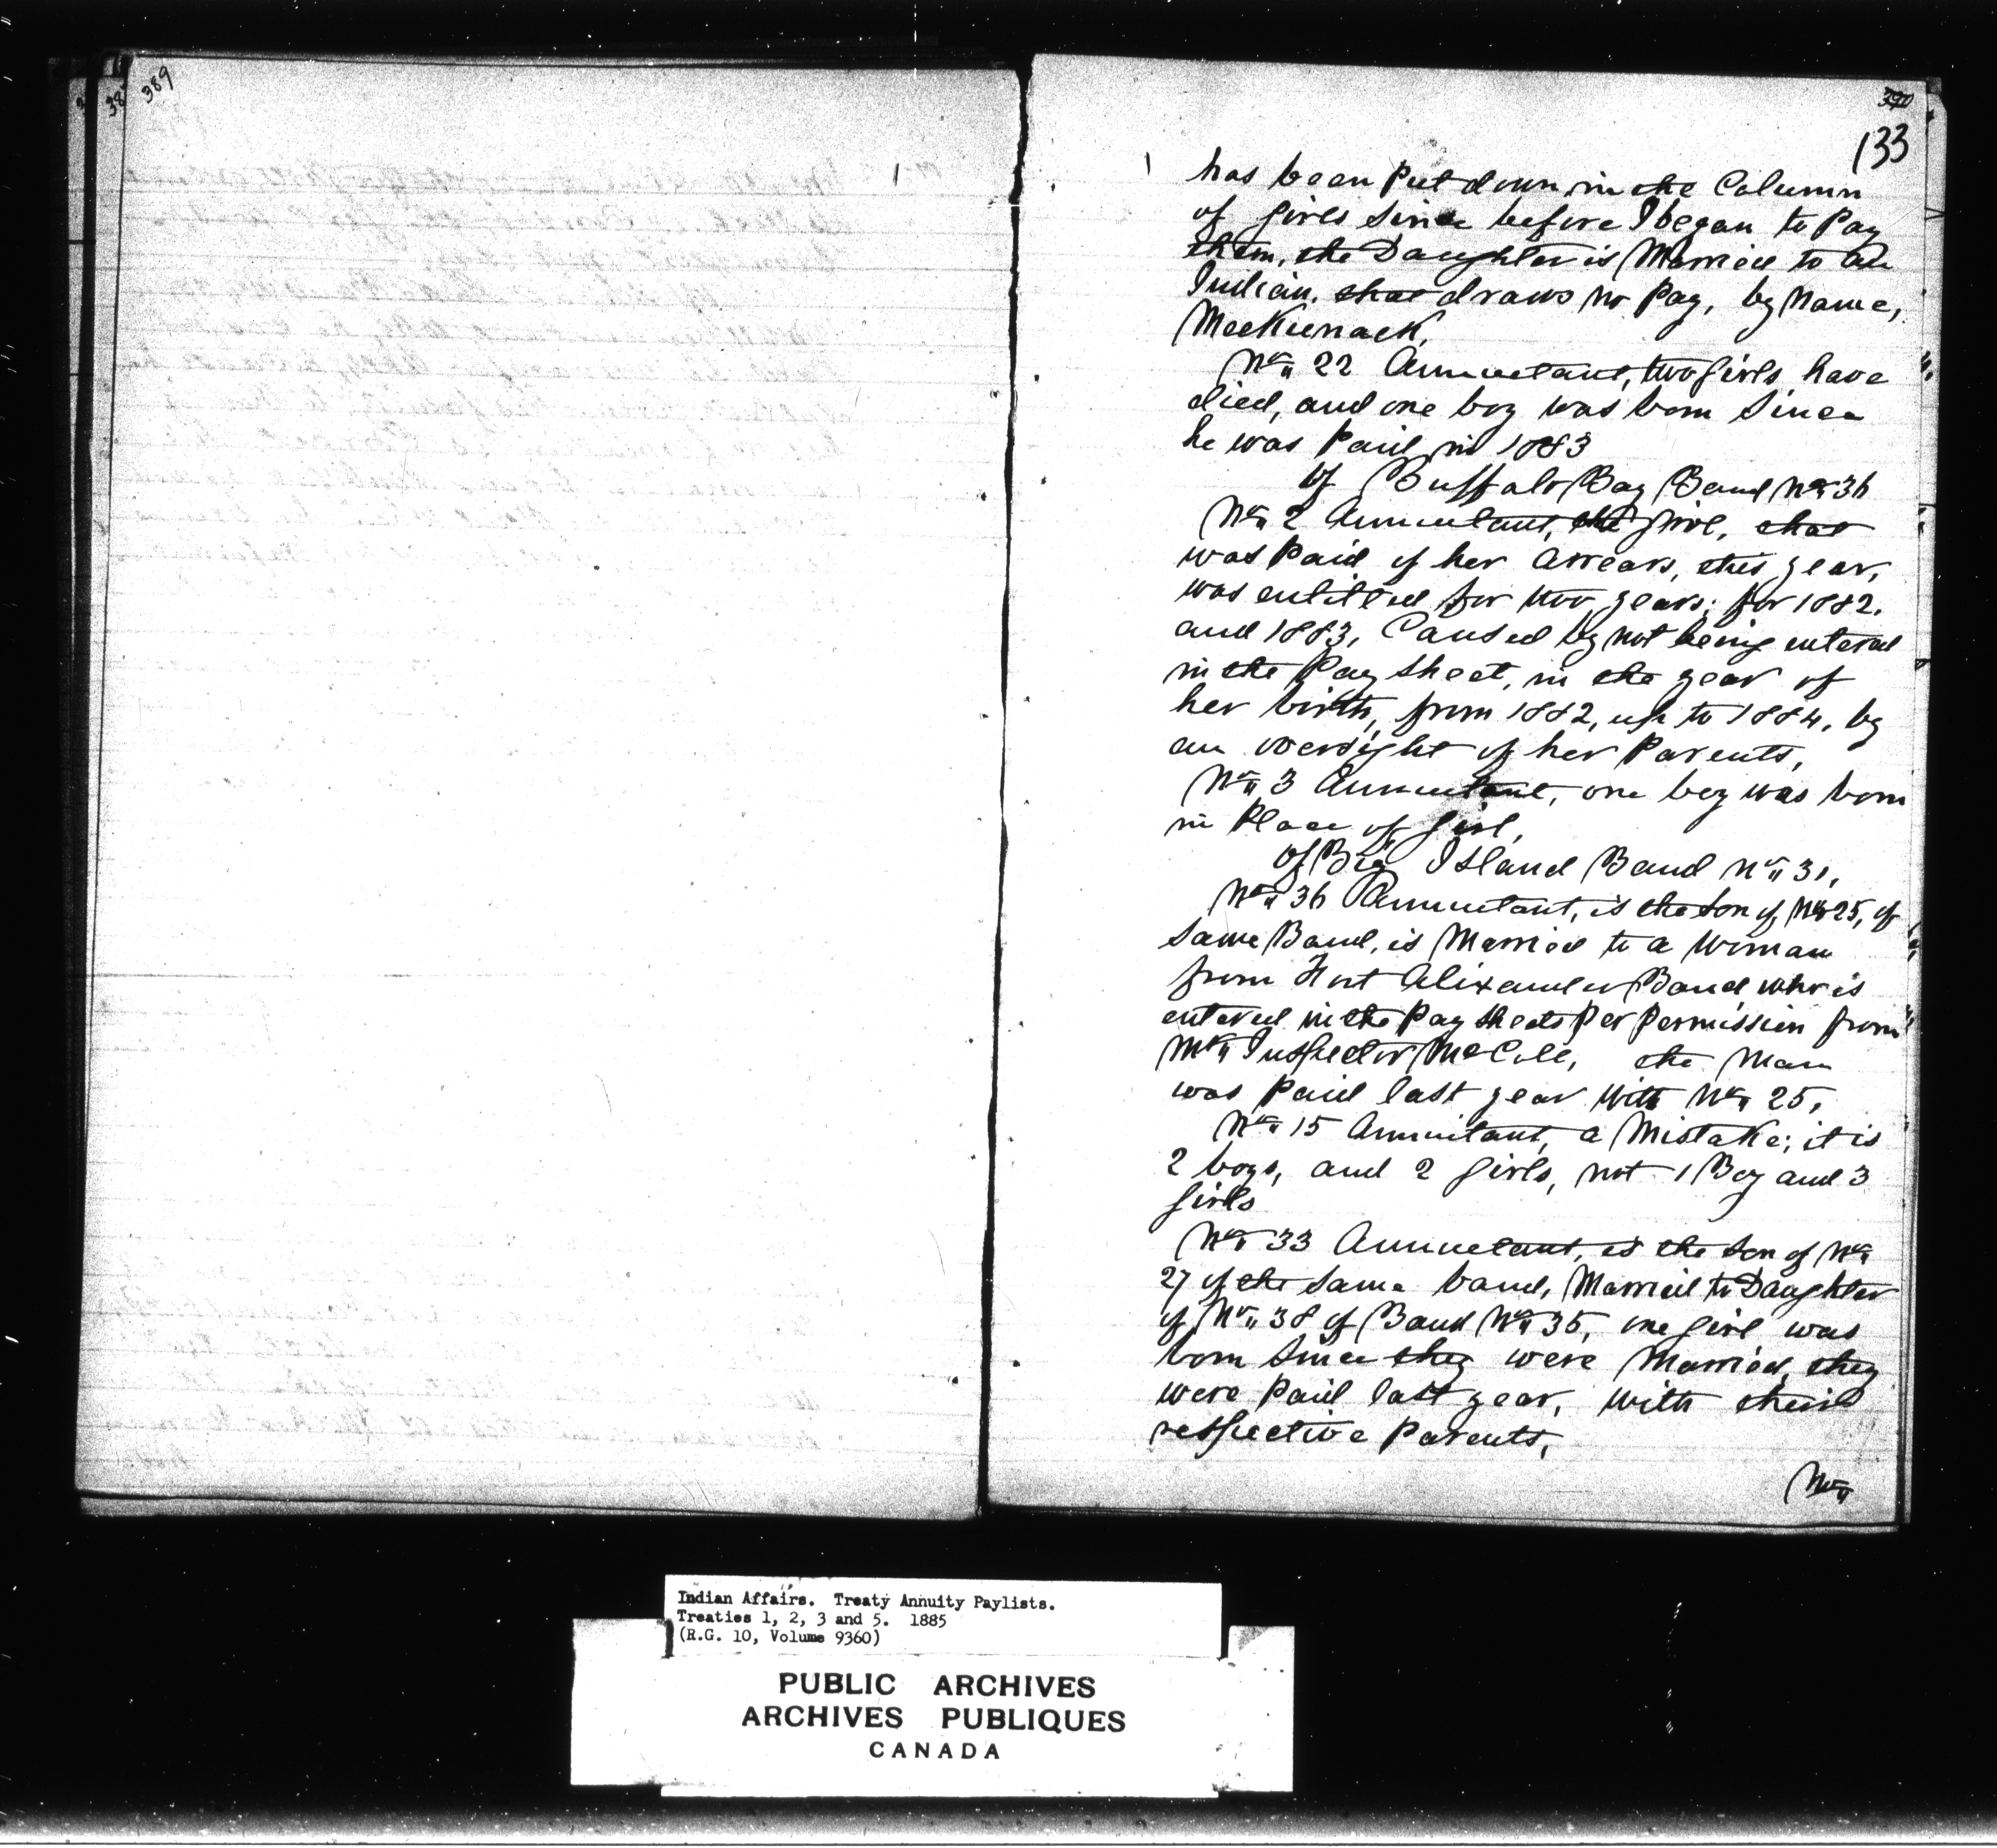 389
38
390
133
has been put down in the Column
of girls since before I began to pay
them, the Daughter is Married to an
Indian. that draws no pay, by name,
MeeKeenack,
No. 22 Annuitant, two girls have
died, and one boy was born Since
he was paid in 1883
Of Buffalo Bay Band No. 36
No. 2 Annuitant, the girl, that
was paid of her arrears, this year,
was entitled for two years; for 1882.
and 1883, Caused by not being entered
in the Pay sheet, in the year of
her birth, from 1882, up to 1884, by
an oversight of her Parents,
No. 3 Annuitant, one boy was born
in Place of girl,
Of Big Island Band No. 31,
No. 36 Annuitant, is the son of No. 25, of
Same Band, is Married to a woman
from Fort Alixander Band, who is
entered in the Pay Sheets per permission from
Mr. Inspector McColl, the Man
was paid last year with No. 25,
No. 15 Annuitant, a Mistake; it is
2 boys, and 2 girls, not 1 Boy and 3
girls
No. 33 Annuitant, is the son of No.
27 of the Same band, Married to Daughter
of No. 38 of Band No. 35, one girl was
born Since they were Married, they
were paid last year, with their
respective Parents,
No.
Indian Affairs. Treaty Annuity Paylists.
Treaties 1, 2, 3 and 5. 1885
(R.G. 10, Volume 9360)
PUBLIC ARCHIVES
ARCHIVES PUBLIQUES
CANADA